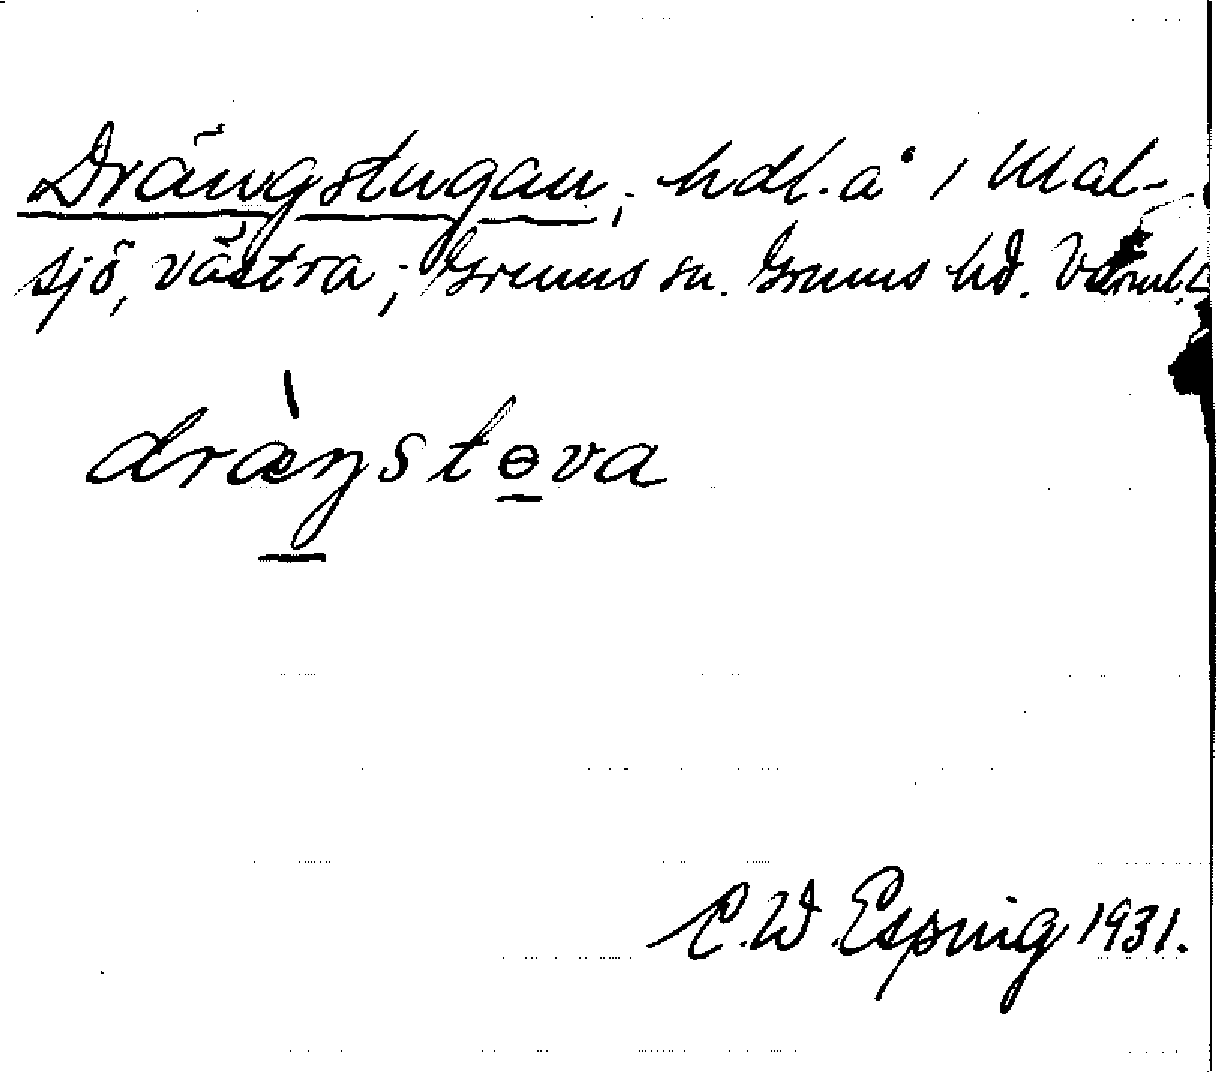 Drängstugan; hdl. å i Mal-
sjö, västra; Grums sn. Grums hd. Värml.
dræ̀ŋstɵva
C.W. Esping 1931.